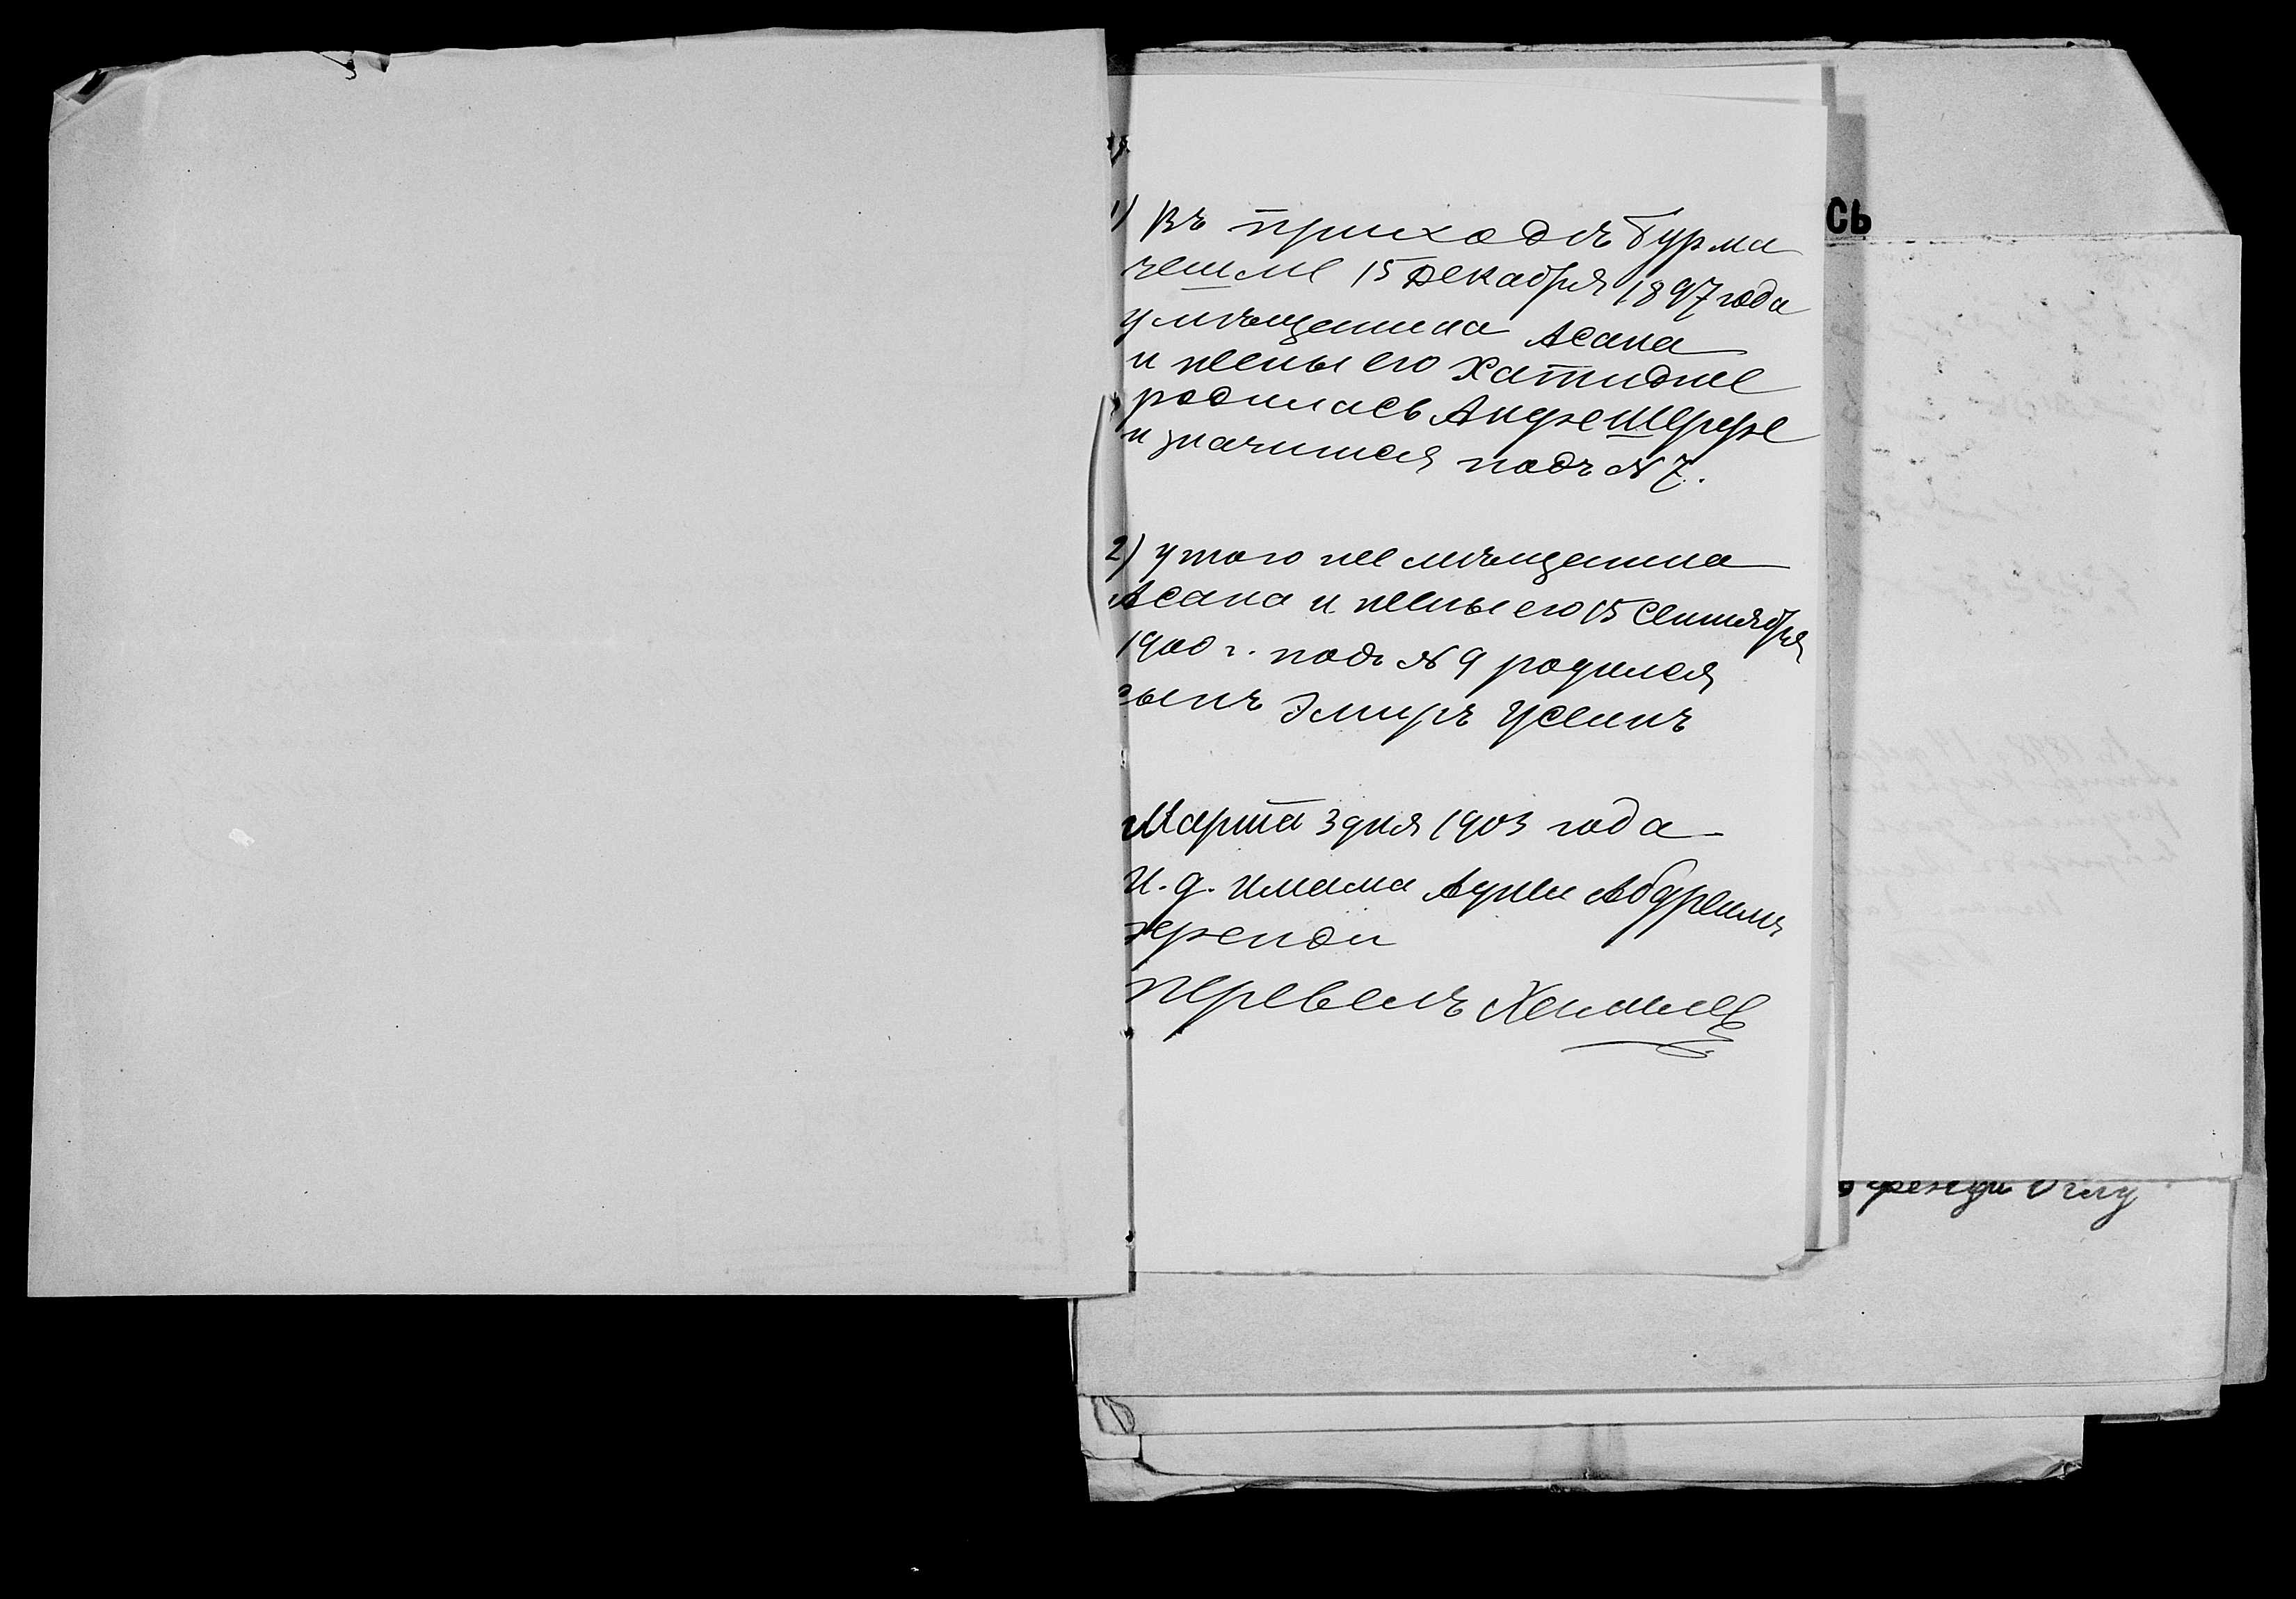 1) Въ приходѣ Бурма
чешме 15 Декабря 1897 года
у мѣщанина Асана
и жены его Хатидже
родилась Анфе Шерфе
и значится подъ № 7.
2) у того же мѣщанина
Асана и жены его 15 Сентября
1900 г. подъ № 9 родился
сынъ Эмиръ Усеинъ
Марта 3 дня 1903 года
И. д. имама Аджи Абдреимъ
эфенди
перевелъ
СЬ
эфенди Оглу